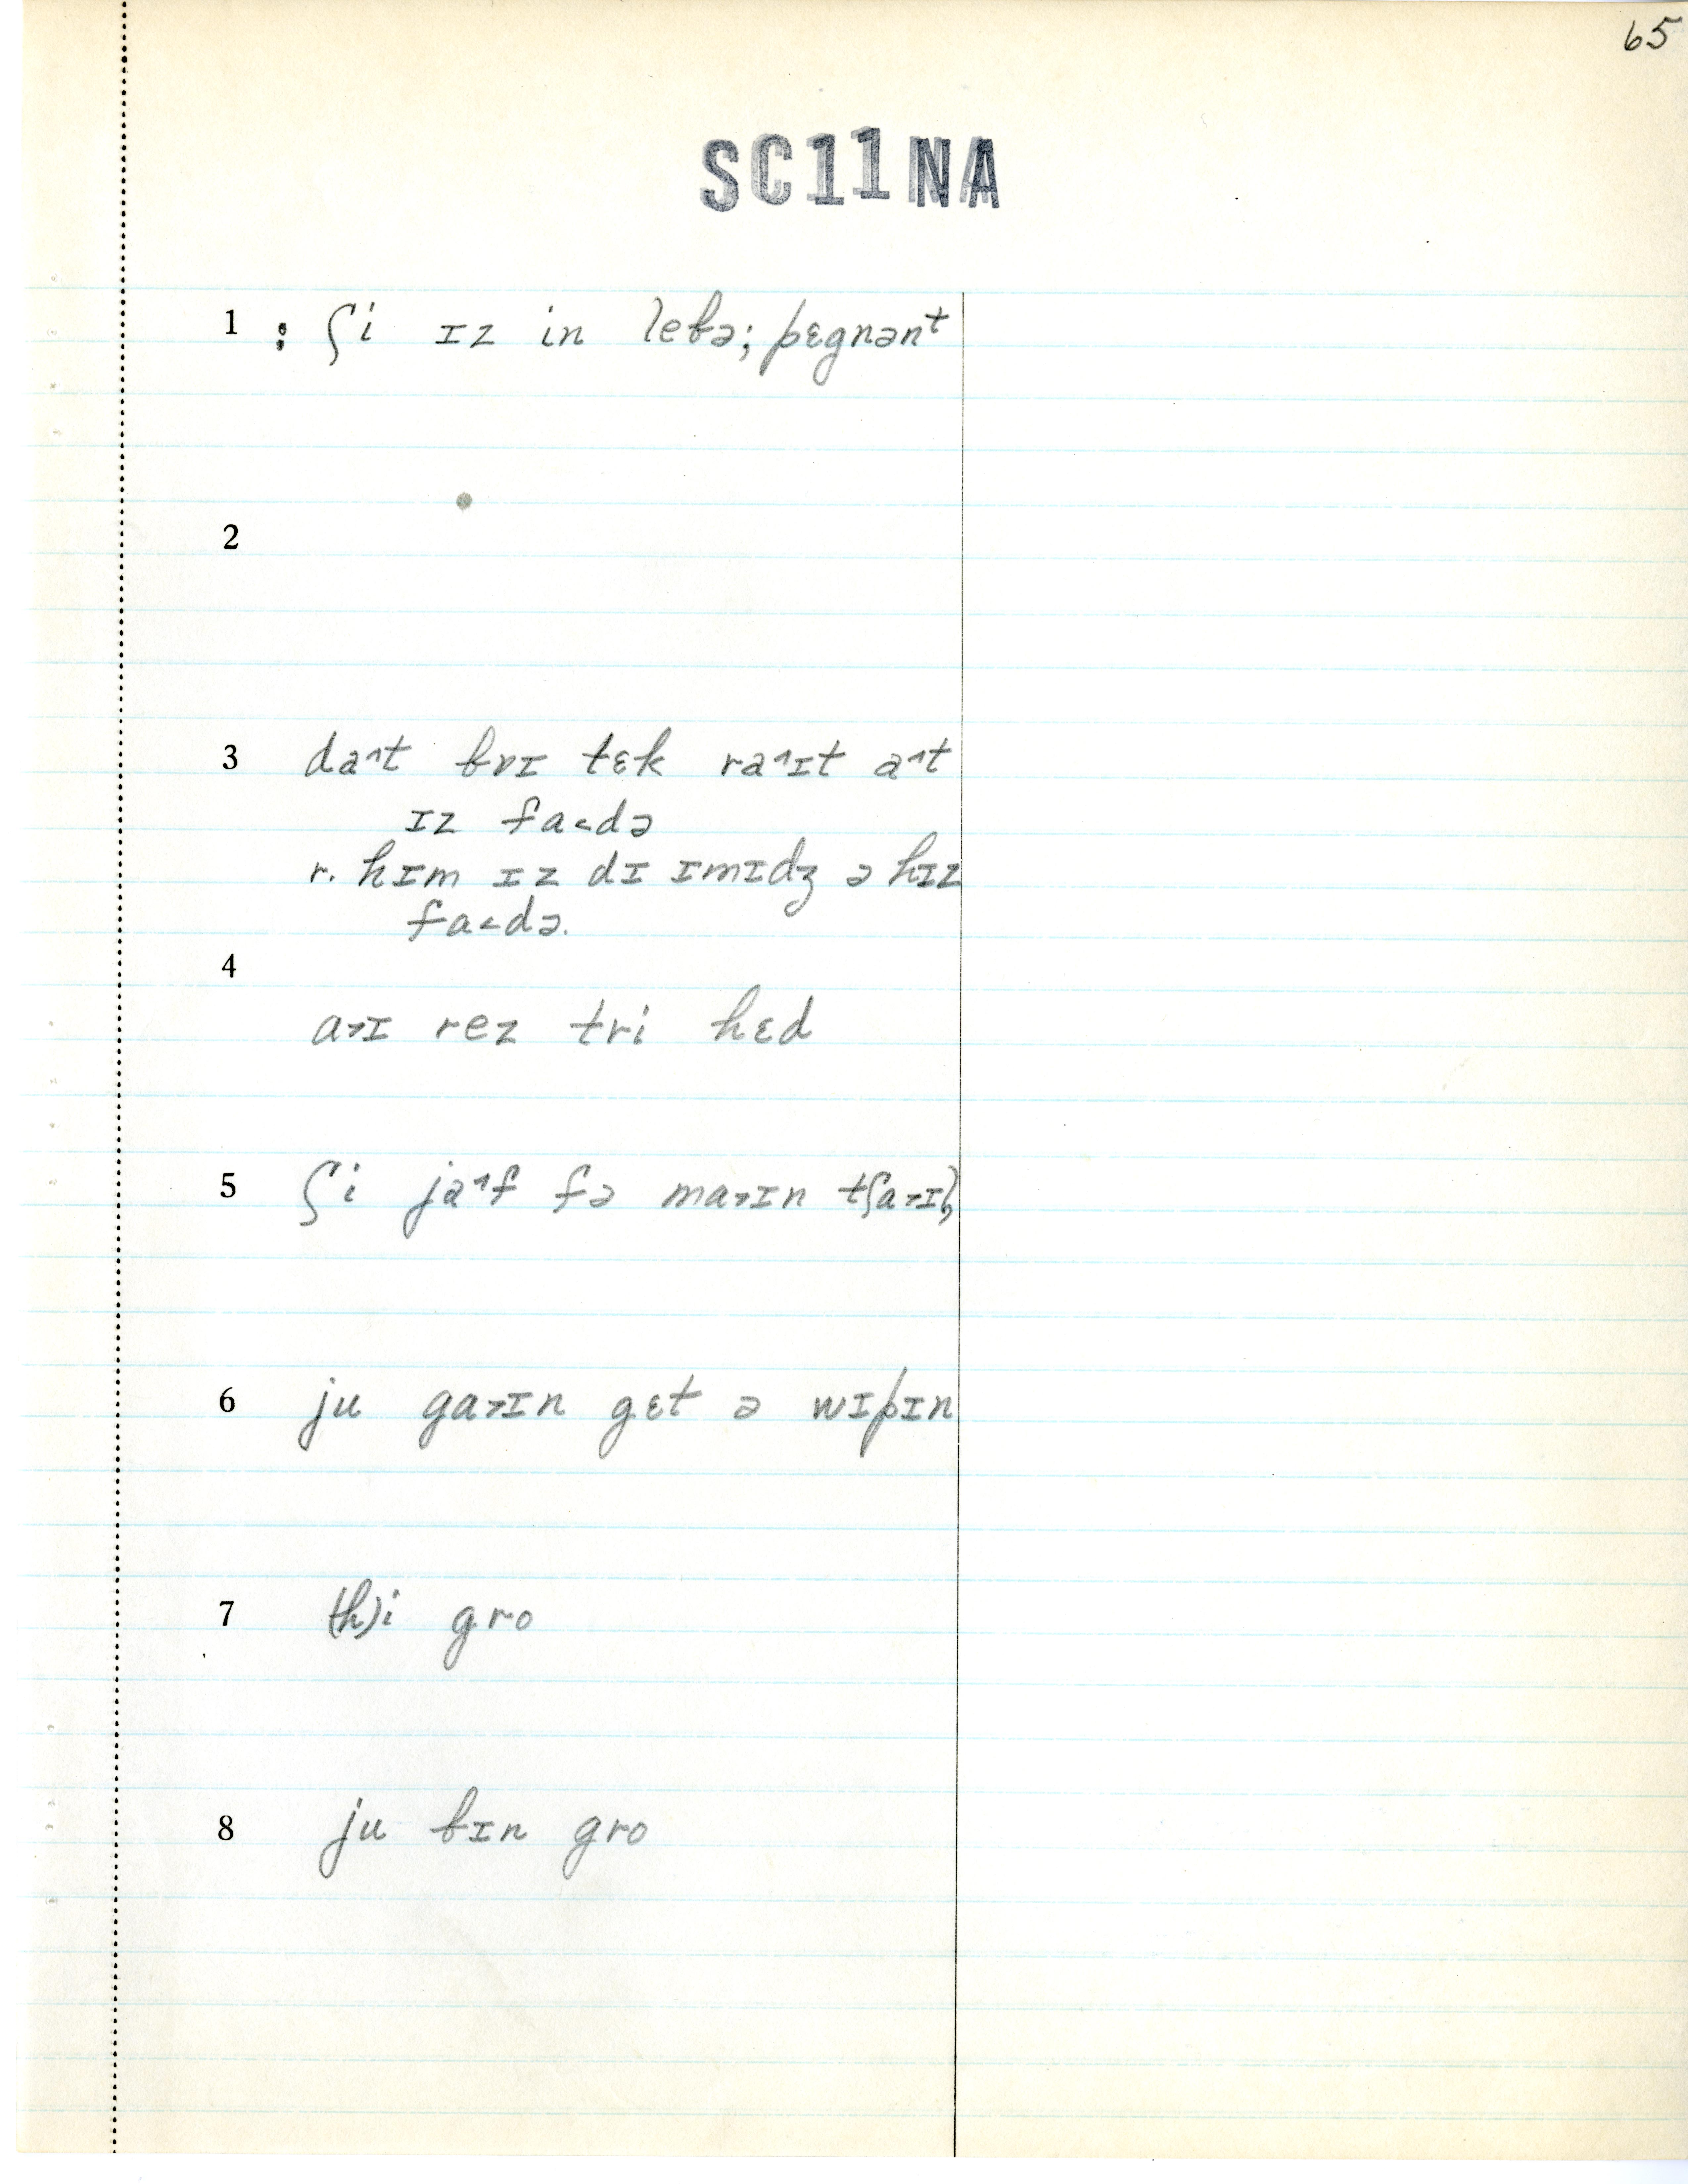 65
SC11NA
1 : ʃi ɪz in lebə; pɛgnənᵗ
2
3 da˄t bɒɪ tɛk ra˄ɪt a˄t
ɪz fa˂də
r. hɪm ɪz dɪ ɪmɪdʒ ə hɪz
fa˂də.
4
a˃ɪ rez tri hɛd
5 ʃi ja˄f fə ma˃ɪn tʃa˃ɪl̩
6 ju ga˃ɪn gɛt ə wɪpɪn
7 (h)i gro
8 ju bɪn gro